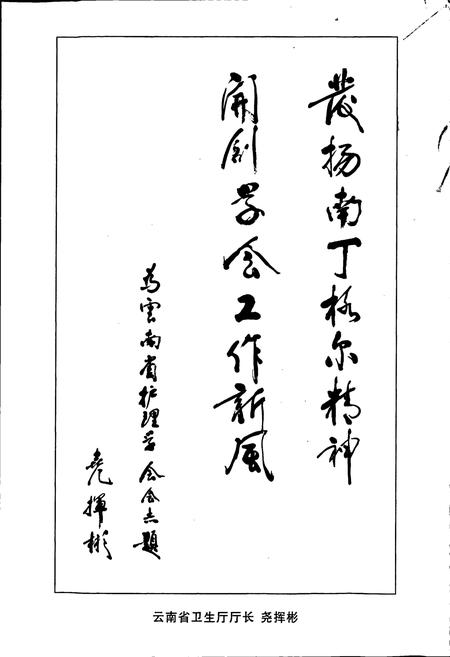 發扬南丁格尔精神
開創学会工作新風
为雲南省护理学会会志題
堯揮彬
云南省卫生厅厅长 尧挥彬